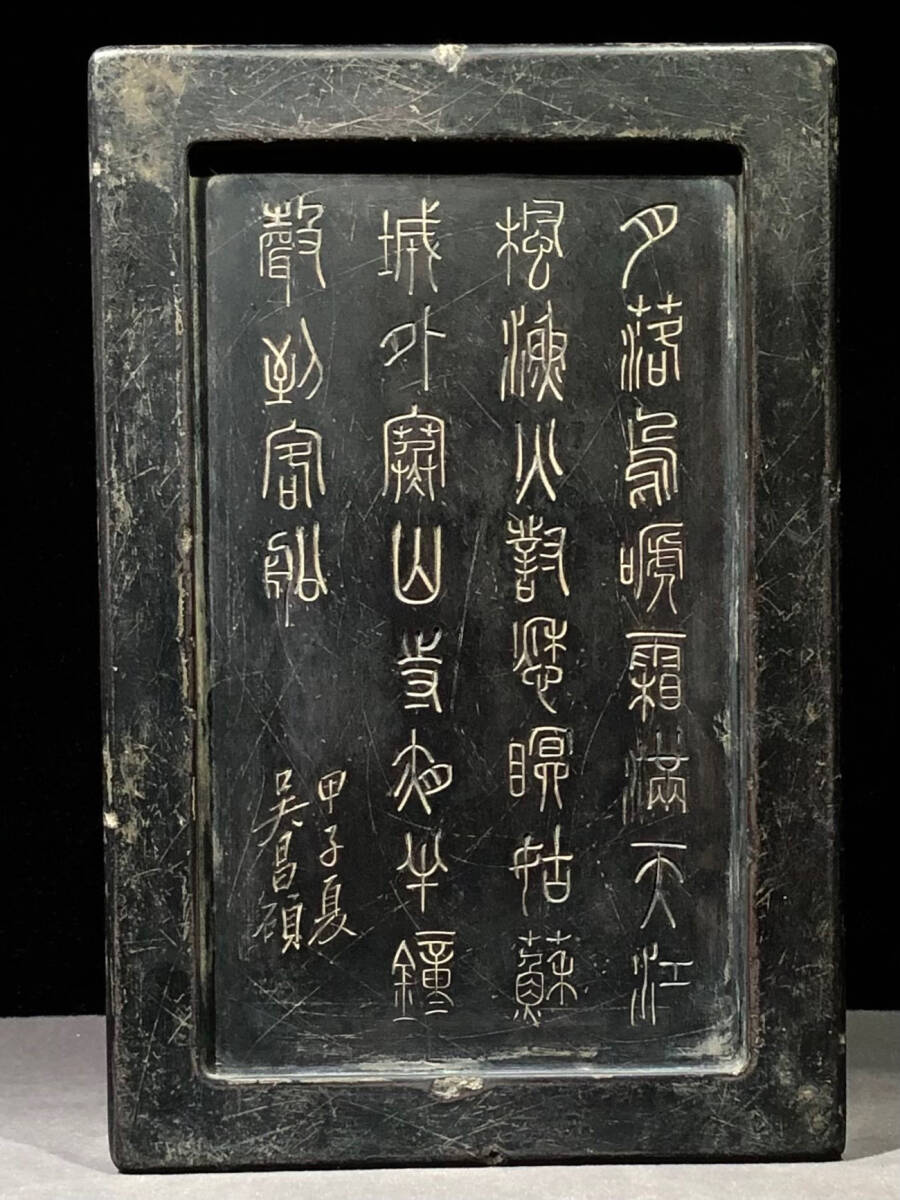 月落烏啼霜滿天江
楓漁火對愁眠姑蘇
城外寒山寺夜半鐘
聲到客船
甲子夏
吳昌碩